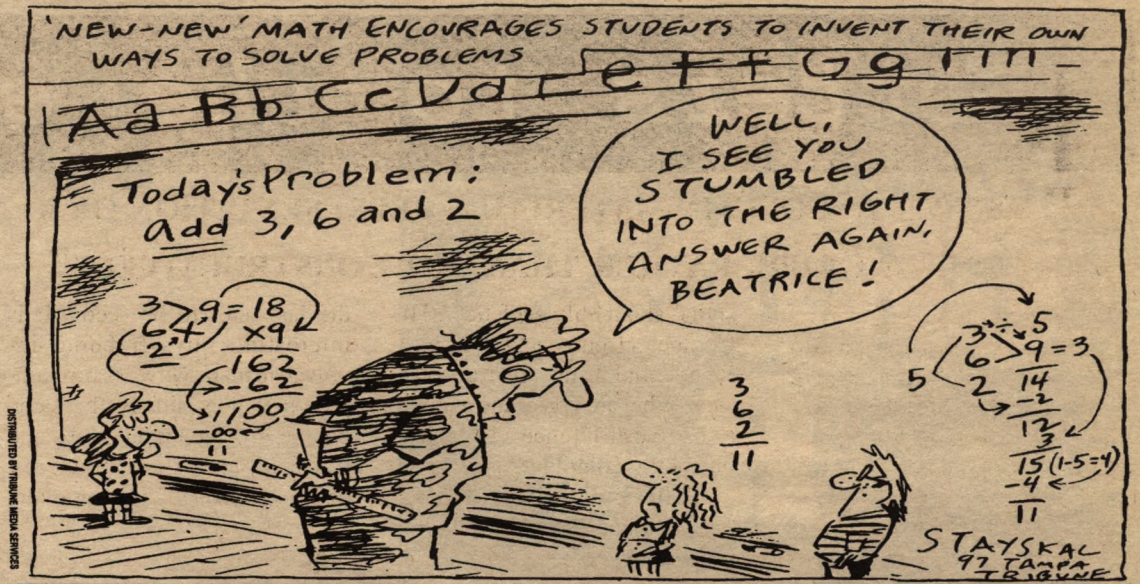 'NEW-NEW' MATH ENCOURAGES STUDENTS TO INVENT THEIR OWN
WAYS TO SOLVE PROBLEMS
Aa Bb Cc Dd E e F f G g
Today's Problem:
add 3, 6 and 2
WELL,
I SEE YOU
STUMBLED
INTO THE RIGHT
ANSWER AGAIN,
BEATRICE!
3 > 9 = 18
6 + x9
2
162
-62
1100
-00
11
3
6
2
11
5
3 ÷
6 > 9 = 3
5 2 14
-2
12
3
15 (1-5=4)
-4
11
STAYSKAL
97 TAMPA
TRIBUNE
DISTRIBUTED BY TRIBUNE MEDIA SERVICES